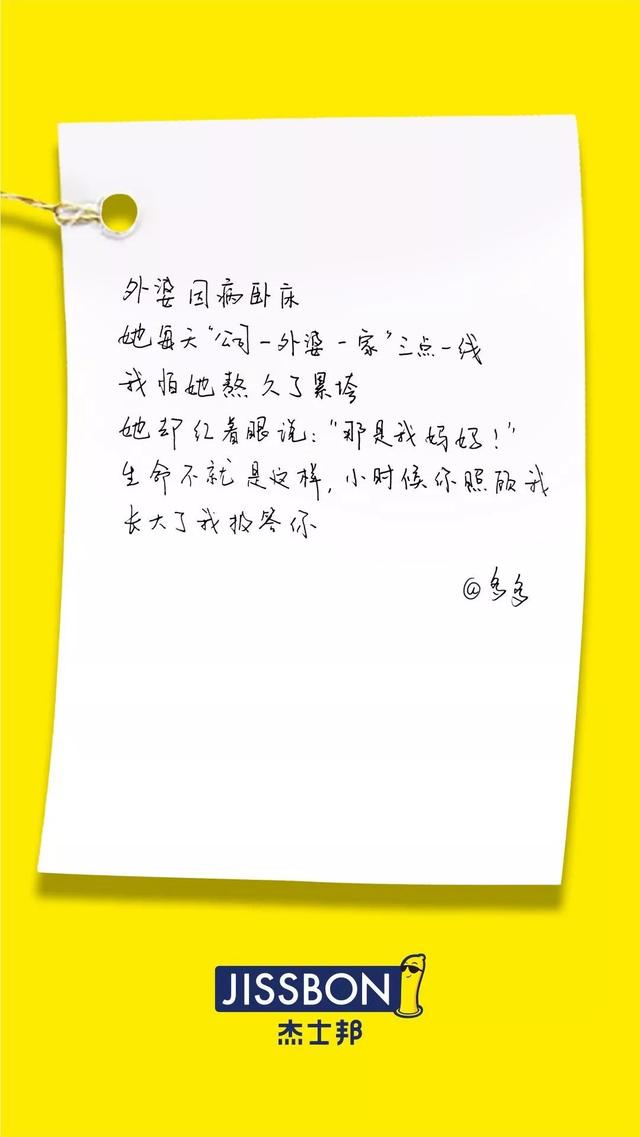 外婆因病卧床
她每天“公司-外婆-家”三点一线
我怕她熬久了累垮
她却红着眼说：“那是我妈妈！”
生命不就是这样，小时候你照顾我
长大了我报答你
@多多
JISSBON
杰士邦